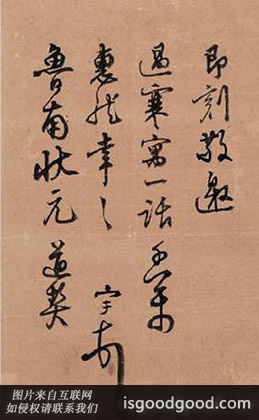 即刻敬邀
過寒寓一話千萬
惠然幸〻
魯甫狀元道契
图片来自互联网
如侵权请联系我们
isgoodgood.com